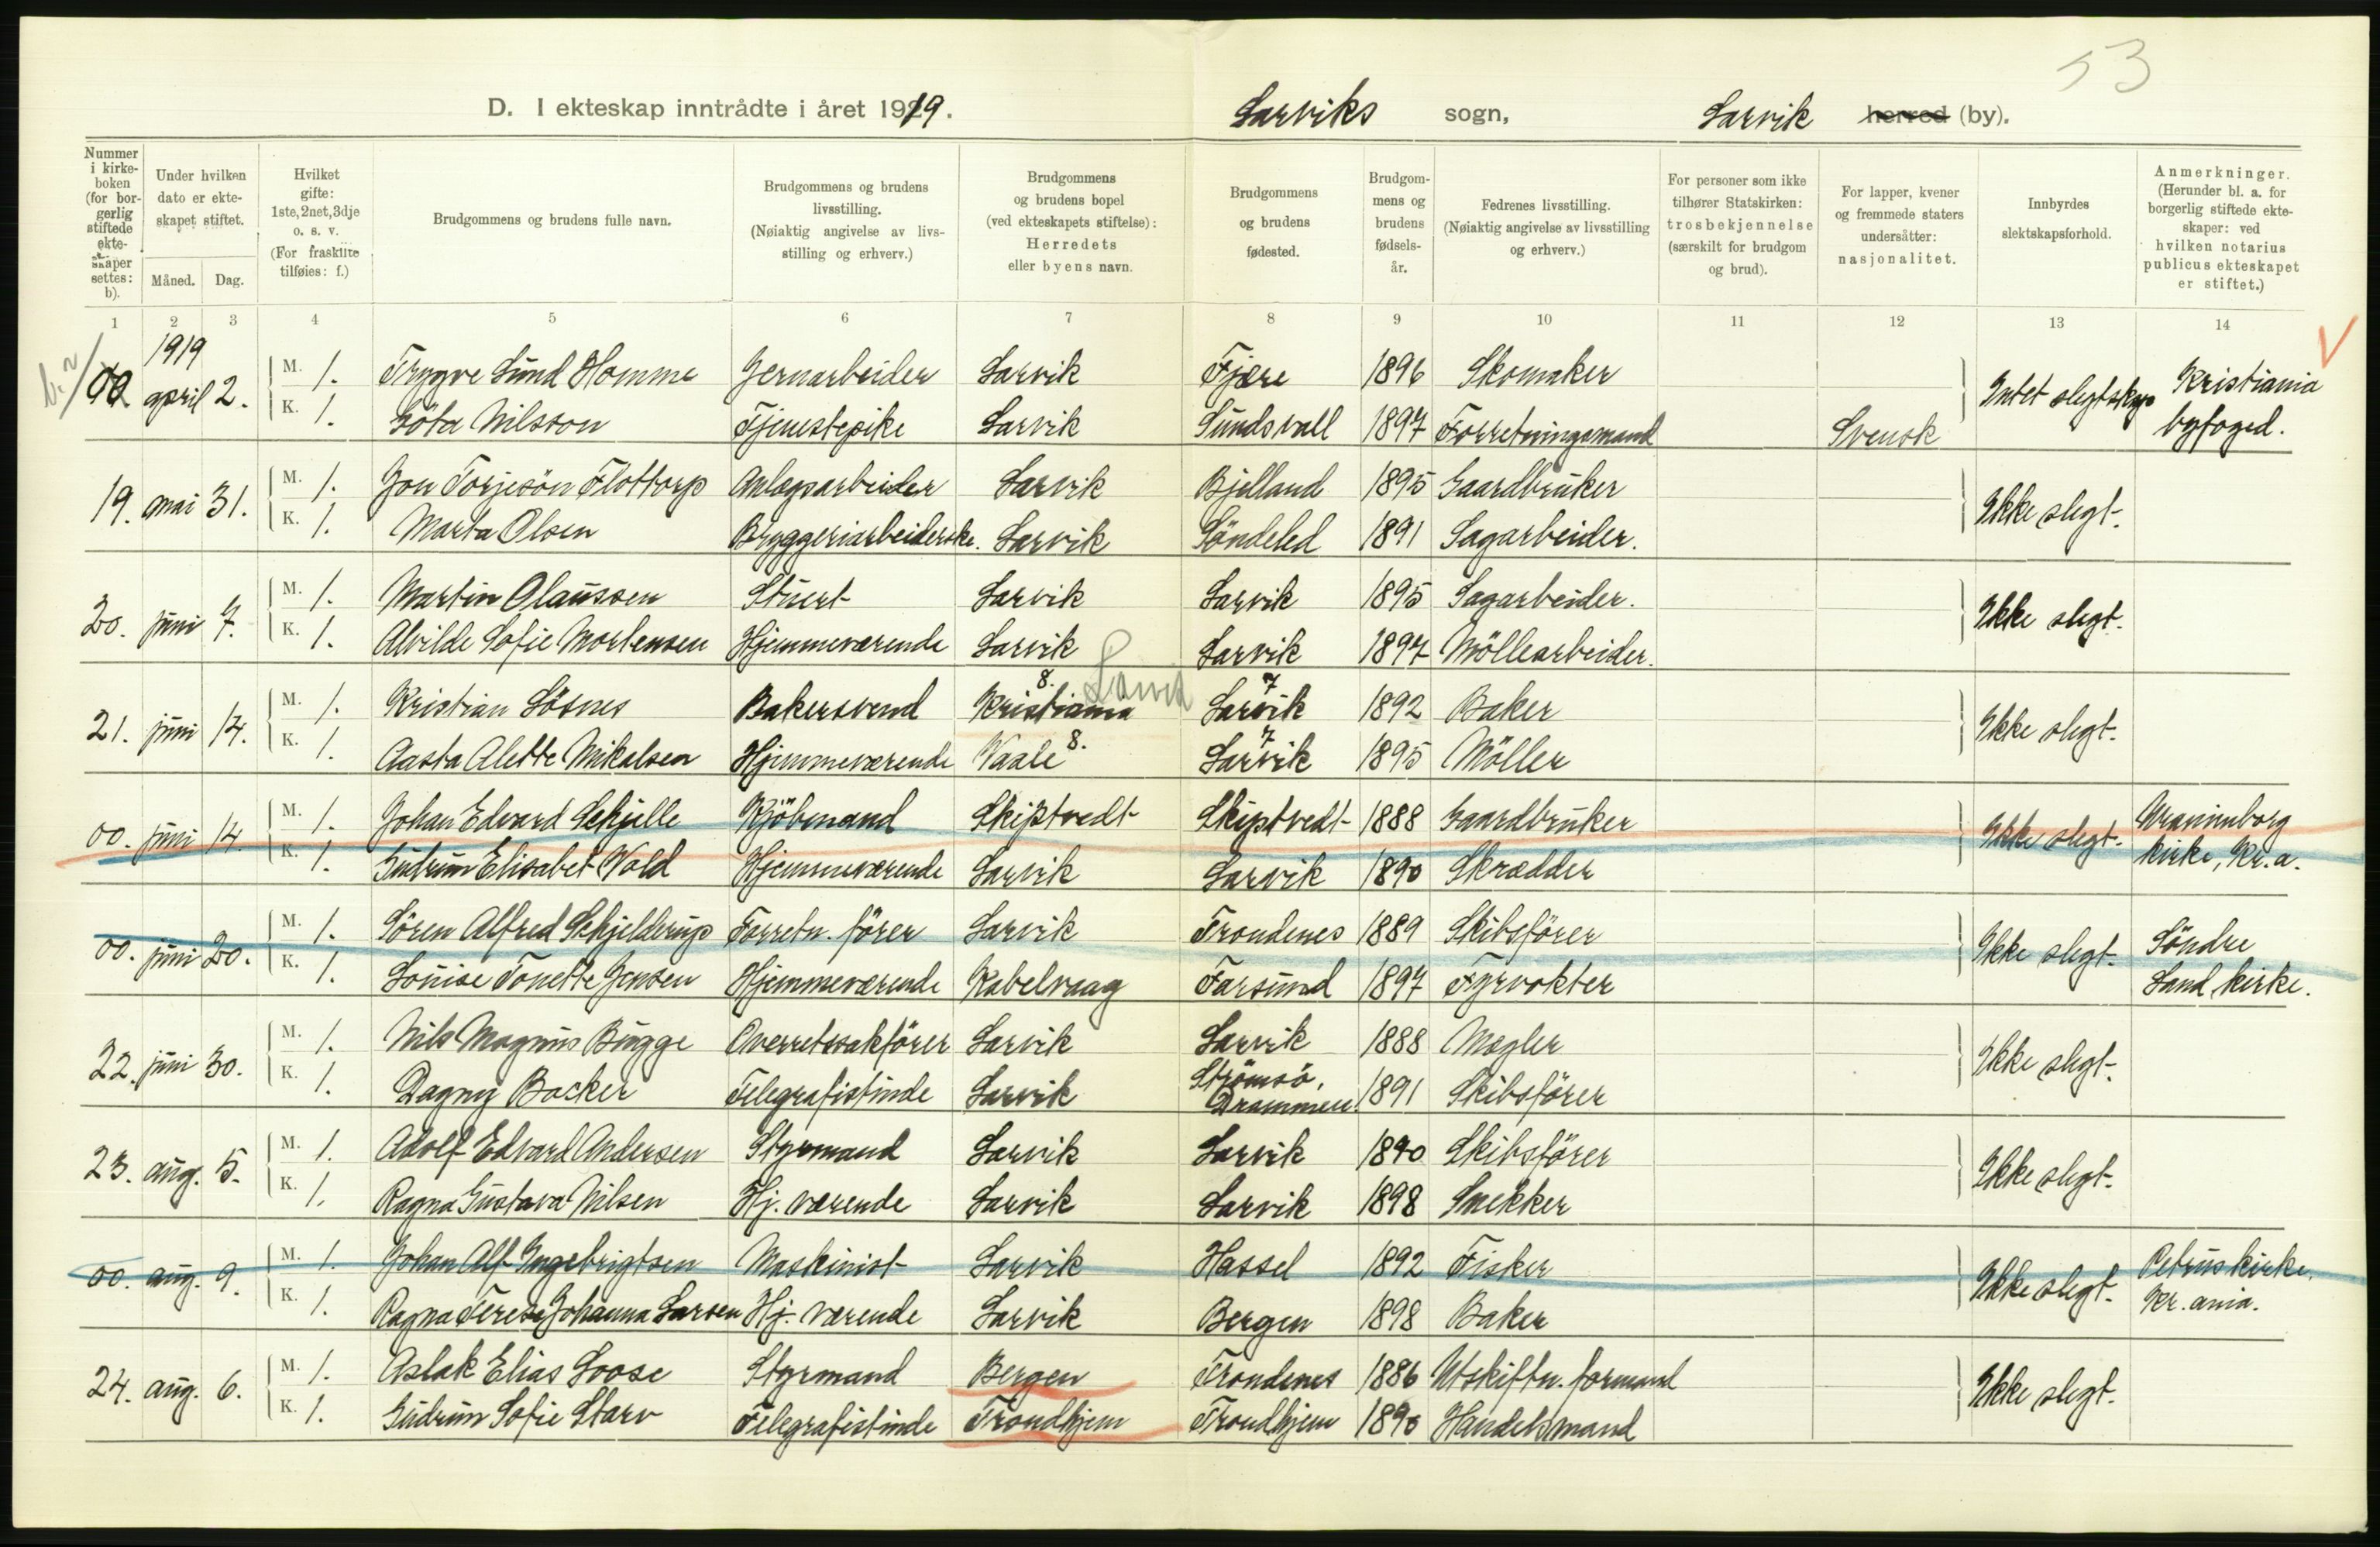 53
D. I ekteskap inntrådte i året 1919. Larviks sogn, Larvik herred (by).
Nummer i kirkeboken (for borgerlig stiftede ekteskaper settes: b).
Under hvilken dato er ekteskapet stiftet.
Måned. Dag.
Hvilket gifte: 1ste, 2net, 3dje o. s. v. (For fraskilte tilføies: f.)
Brudgommens og brudens fulle navn.
Brudgommens og brudens livsstilling. (Nøiaktig angivelse av livsstilling og erhverv.)
Brudgommens og brudens bopel (ved ekteskapets stiftelse): Herredets eller byens navn.
Brudgommens og brudens fødested.
Brudgommens og brudens fødselsår.
Fedrenes livsstilling. (Nøiaktig angivelse av livsstilling og erhverv.)
For personer som ikke tilhører Statskirken: trosbekjennelse (særskilt for brudgom og brud).
For lapper, kvener og fremmede staters undersåtter: nasjonalitet.
Innbyrdes slektskapsforhold.
Anmerkninger. (Herunder bl. a. for borgerlig stiftede ekteskaper: ved hvilken notarius publicus ekteskapet er stiftet.)
1 2 3 4 5 6 7 8 9 10 11 12 13 14
1919
00 april 2. M. 1. Trygve Lund Homme Jernarbeider Larvik Fjære 1896 Skomaker Intet slegtskap Kristiania
K. 1. Göta Nilsson Tjenestepike Larvik Sundsvall 1897 Forretningsmand Svensk byfoged.
19. mai 31. M. 1. Jon Torjesön Flottorp Anlægsarbeider Larvik Bjelland 1895 Gaardbruker Ikke slegt.
K. 1. Marta Olsen Bryggeriarbeiderske. Larvik Söndeled 1891 Sagarbeider.
20. juni 7. M. 1. Martin Olaussen Stuert Larvik Larvik 1895 Sagarbeider. Ikke slegt.
K. 1. Alvilde Sofie Mortensen Hjemmeværende Larvik Larvik 1897 Möllearbeider.
21. juni 14. M. 1. Kristian Lösnes Bakersvend Kristiania 8. Larvik Larvik 7 1892 Baker Ikke slegt.
K. 1. Aasta Alette Mikalsen Hjemmeværende Vaale 8. Larvik 7 1895 Möller
00. juni 14. M. 1. Johan Edvard Schjelle Kjöbmand Skiptvedt Skiptvedt 1888 Gaardbruker Ikke slegt. Uranienborg
K. 1. Gudrun Elisabet Vold Hjemmeværende Larvik Larvik 1890 Skrædder kirke, Kr.a.
00. juni 20. M. 1. Sören Alfred Schjelderup Forretn. förer Larvik Trondenes 1889 Skibsförer Ikke slegt. Söndre
K. 1. Louise Tonette Jensen Hjemmeværende Kabelvaag Farsund 1897 Fyrvokter Land kirke.
22. juni 30. M. 1. Nils Magnus Bugge Overretssakförer Larvik Larvik 1888 Megler Ikke slegt.
K. 1. Dagny Backer Telegrafistinde Larvik Strömsö, Drammen 1891 Skibsförer
23. aug. 5. M. 1. Adolf Edvard Andersen Styrmand Larvik Larvik 1890 Skibsförer Ikke slegt.
K. 1. Ragna Gustava Nilsen Hj. værende Larvik Larvik 1898 Snekker
00. aug. 9. M. 1. Johan Alf Ingebrigtsen Maskinist Larvik Hassel 1892 Fisker Ikke slegt. Petruskirke.
K. 1. Ragna Terese Johanna Larsen Hj. værende Larvik Bergen 1898 Baker Kr.ania.
24. aug. 6. M. 1. Aslak Elias Loose Styrmand Bergen Trondenes 1886 Utskiftn. formand Ikke slegt.
K. 1. Gudrun Sofie Starv Telegrafistinde Trondhjem Trondhjem 1890 Handelsmand